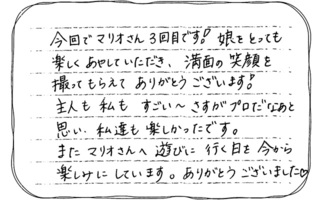 今回でマリオさん3回目です! 娘をとっても
楽しくあやしていただき、満面の笑顔を
撮ってもらえて ありがとうございます!
主人も私も すごい〜さすがプロだなあと
思い、私達も楽しかったです。
またマリオさんへ 遊びに行く日を今から
楽しみにしています。ありがとうございました♡